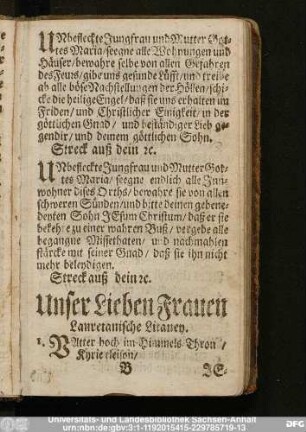 UNbefleckte Jungfrau und Mutter Got-
tes Maria/ seegne alle Wohnungen und
Häuser/ bewahre selbe von allen Gefahren
des Feurs/ gibe uns gesunde Lüfft/ und treibe
ab alle böse Nachstellungen der Höllen/ schi-
cke die heilige Engel/ daß sie uns erhalten im
Friden/ und Christlicher Einigkeit/ in der
göttlichen Gnad/ und beständiger Lieb ge-
gen dir/ und deinem göttlichen Sohn.
Streck auß dein ꝛc.
UNbefleckte Jungfrau und Mutter Got-
tes Maria/ seegne endlich alle Inn-
wohner dises Orths/ bewahre sie von allen
schweren Sünden/ und bitte deinen gebene-
deyten Sohn JEsum Christum/ daß er sie
bekehre zu einer wahren Buß/ vergebe alle
begangne Missethaten/ und nachmahlen
stärcke mit seiner Gnad/ daß sie ihn nicht
mehr beleydigen.
Streck auß dein ꝛc.
Unser Lieben Frauen
Lauretanische Litaney.
1. VAtter hoch im Himmels Thron/
Kyrie eleison/
B JE-
Universitäts- und Landesbibliothek Sachsen-Anhalt
urn:nbn:de:gbv:3:1-1192015415-229785719-13
DFG